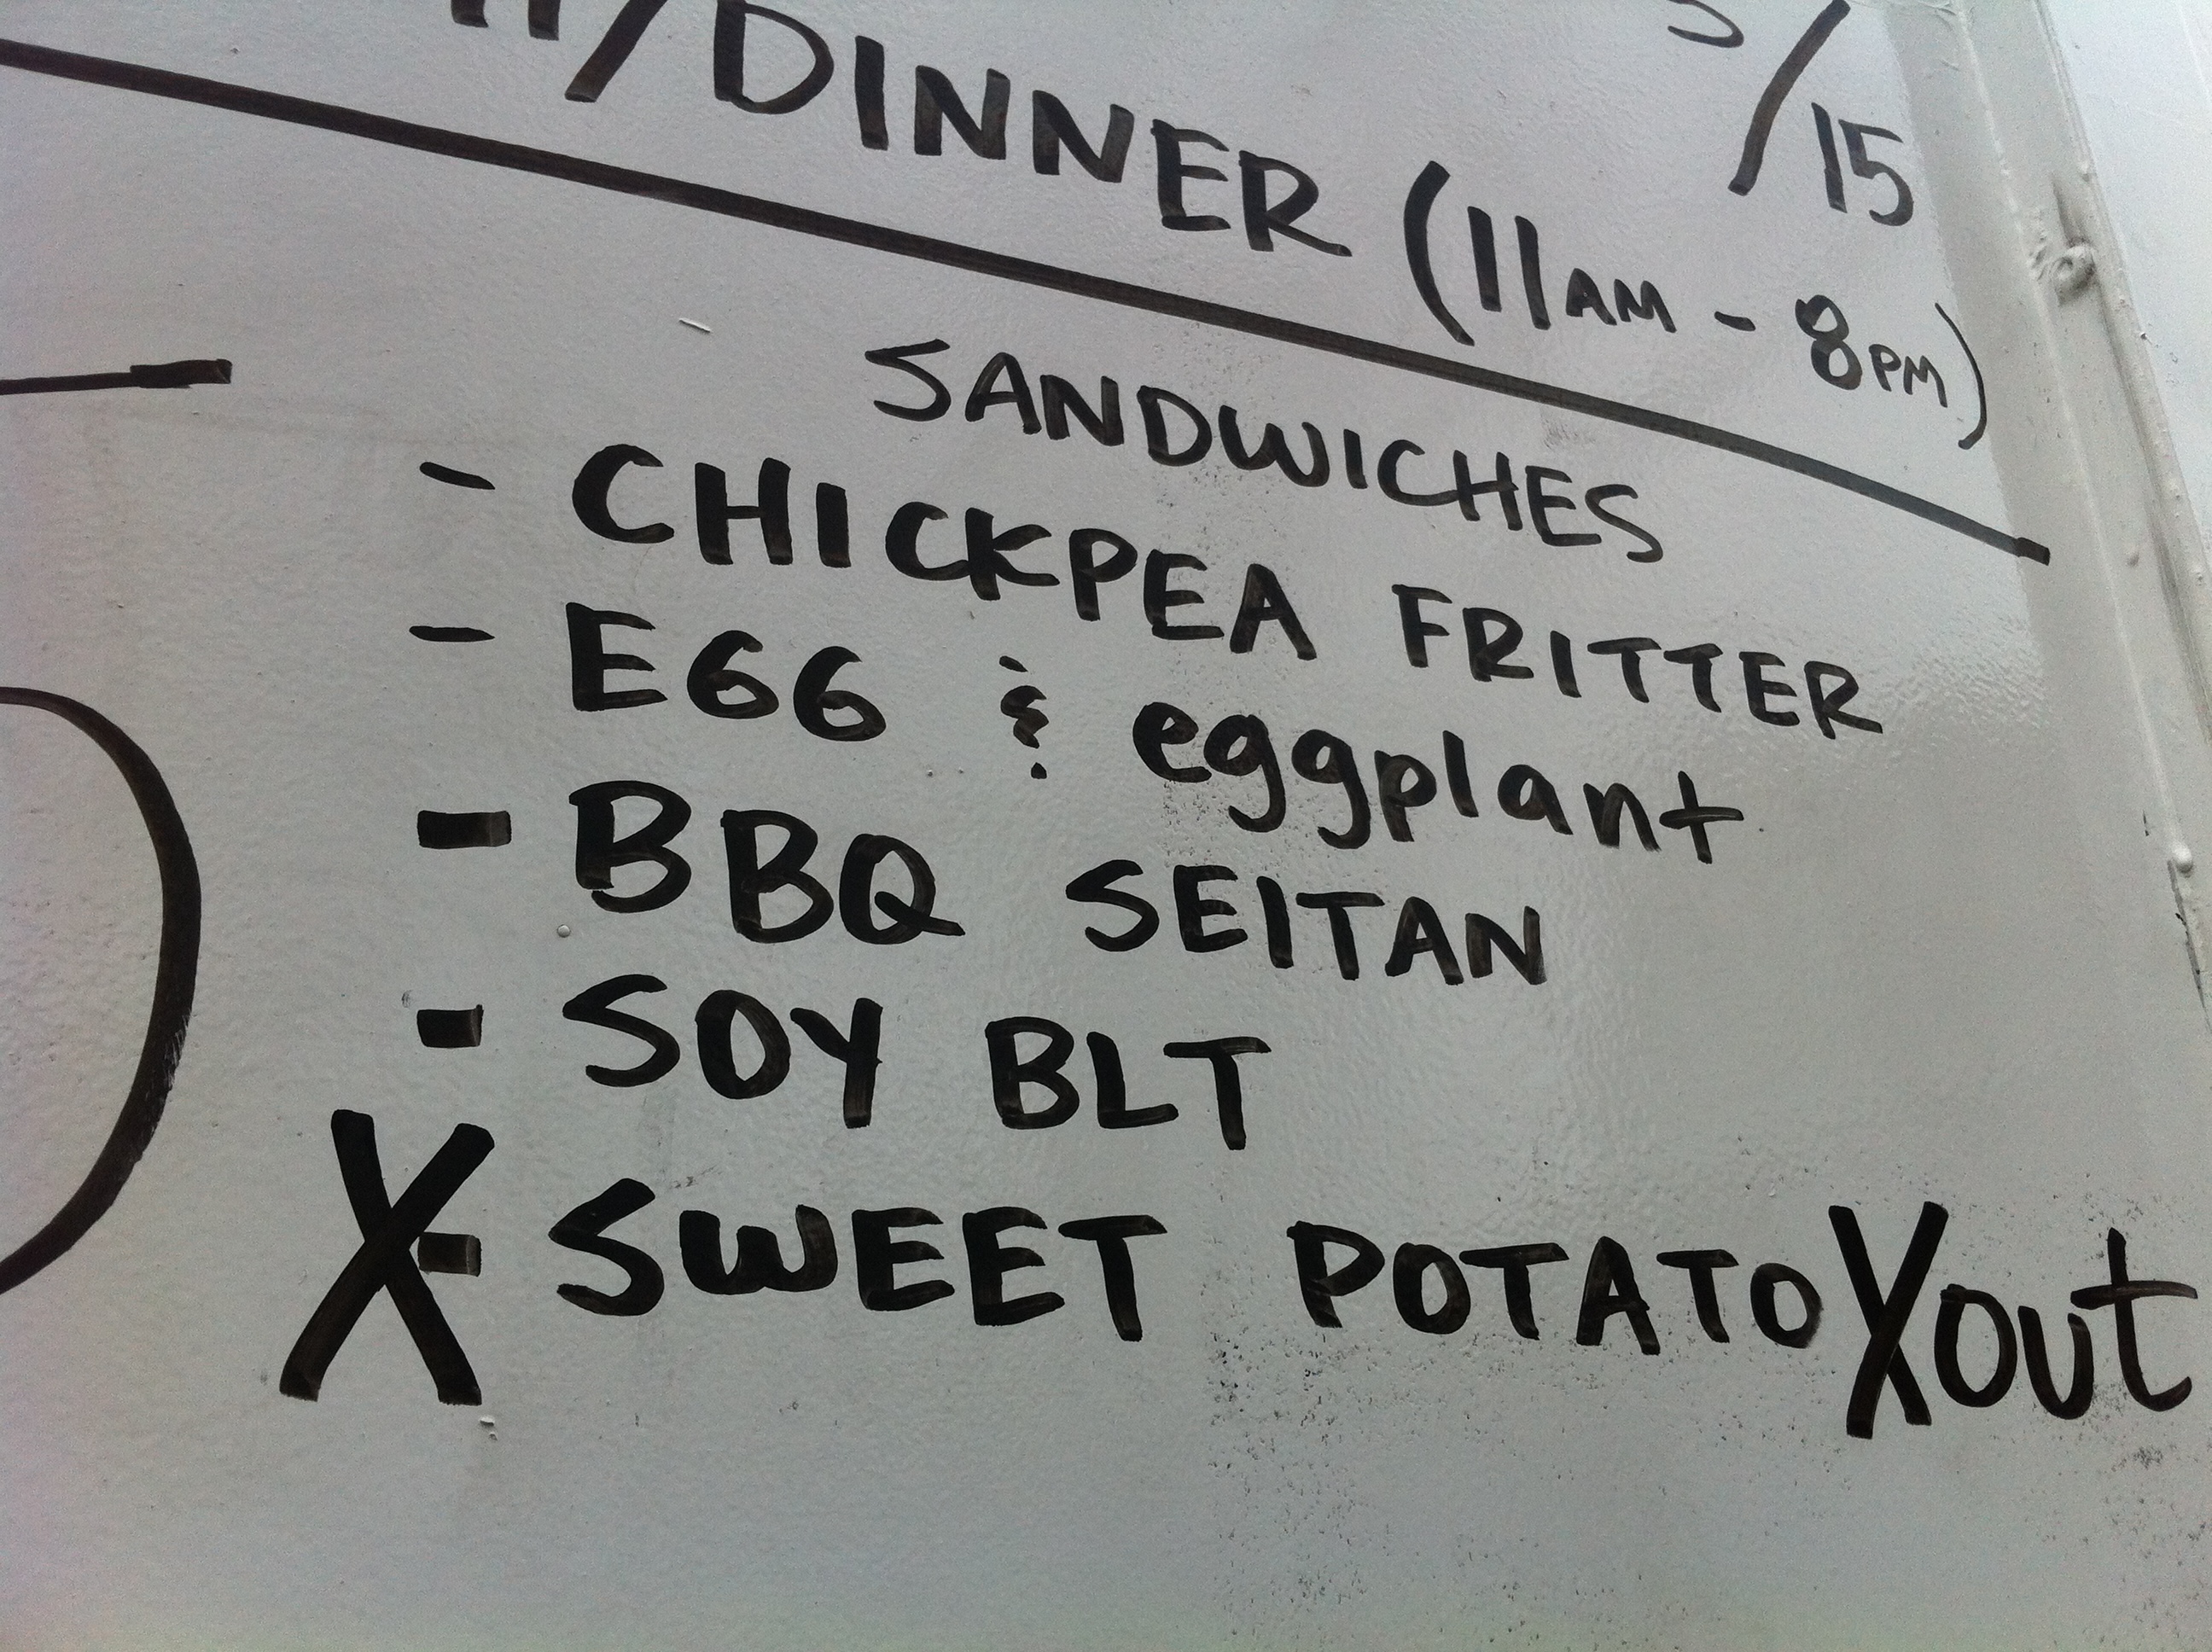 /15
/DINNER (11AM - 8PM)
SANDWICHES
- CHICKPEA FRITTER
- EGG & eggplant
- BBQ SEITAN
- SOY BLT
X - SWEET POTATO X out